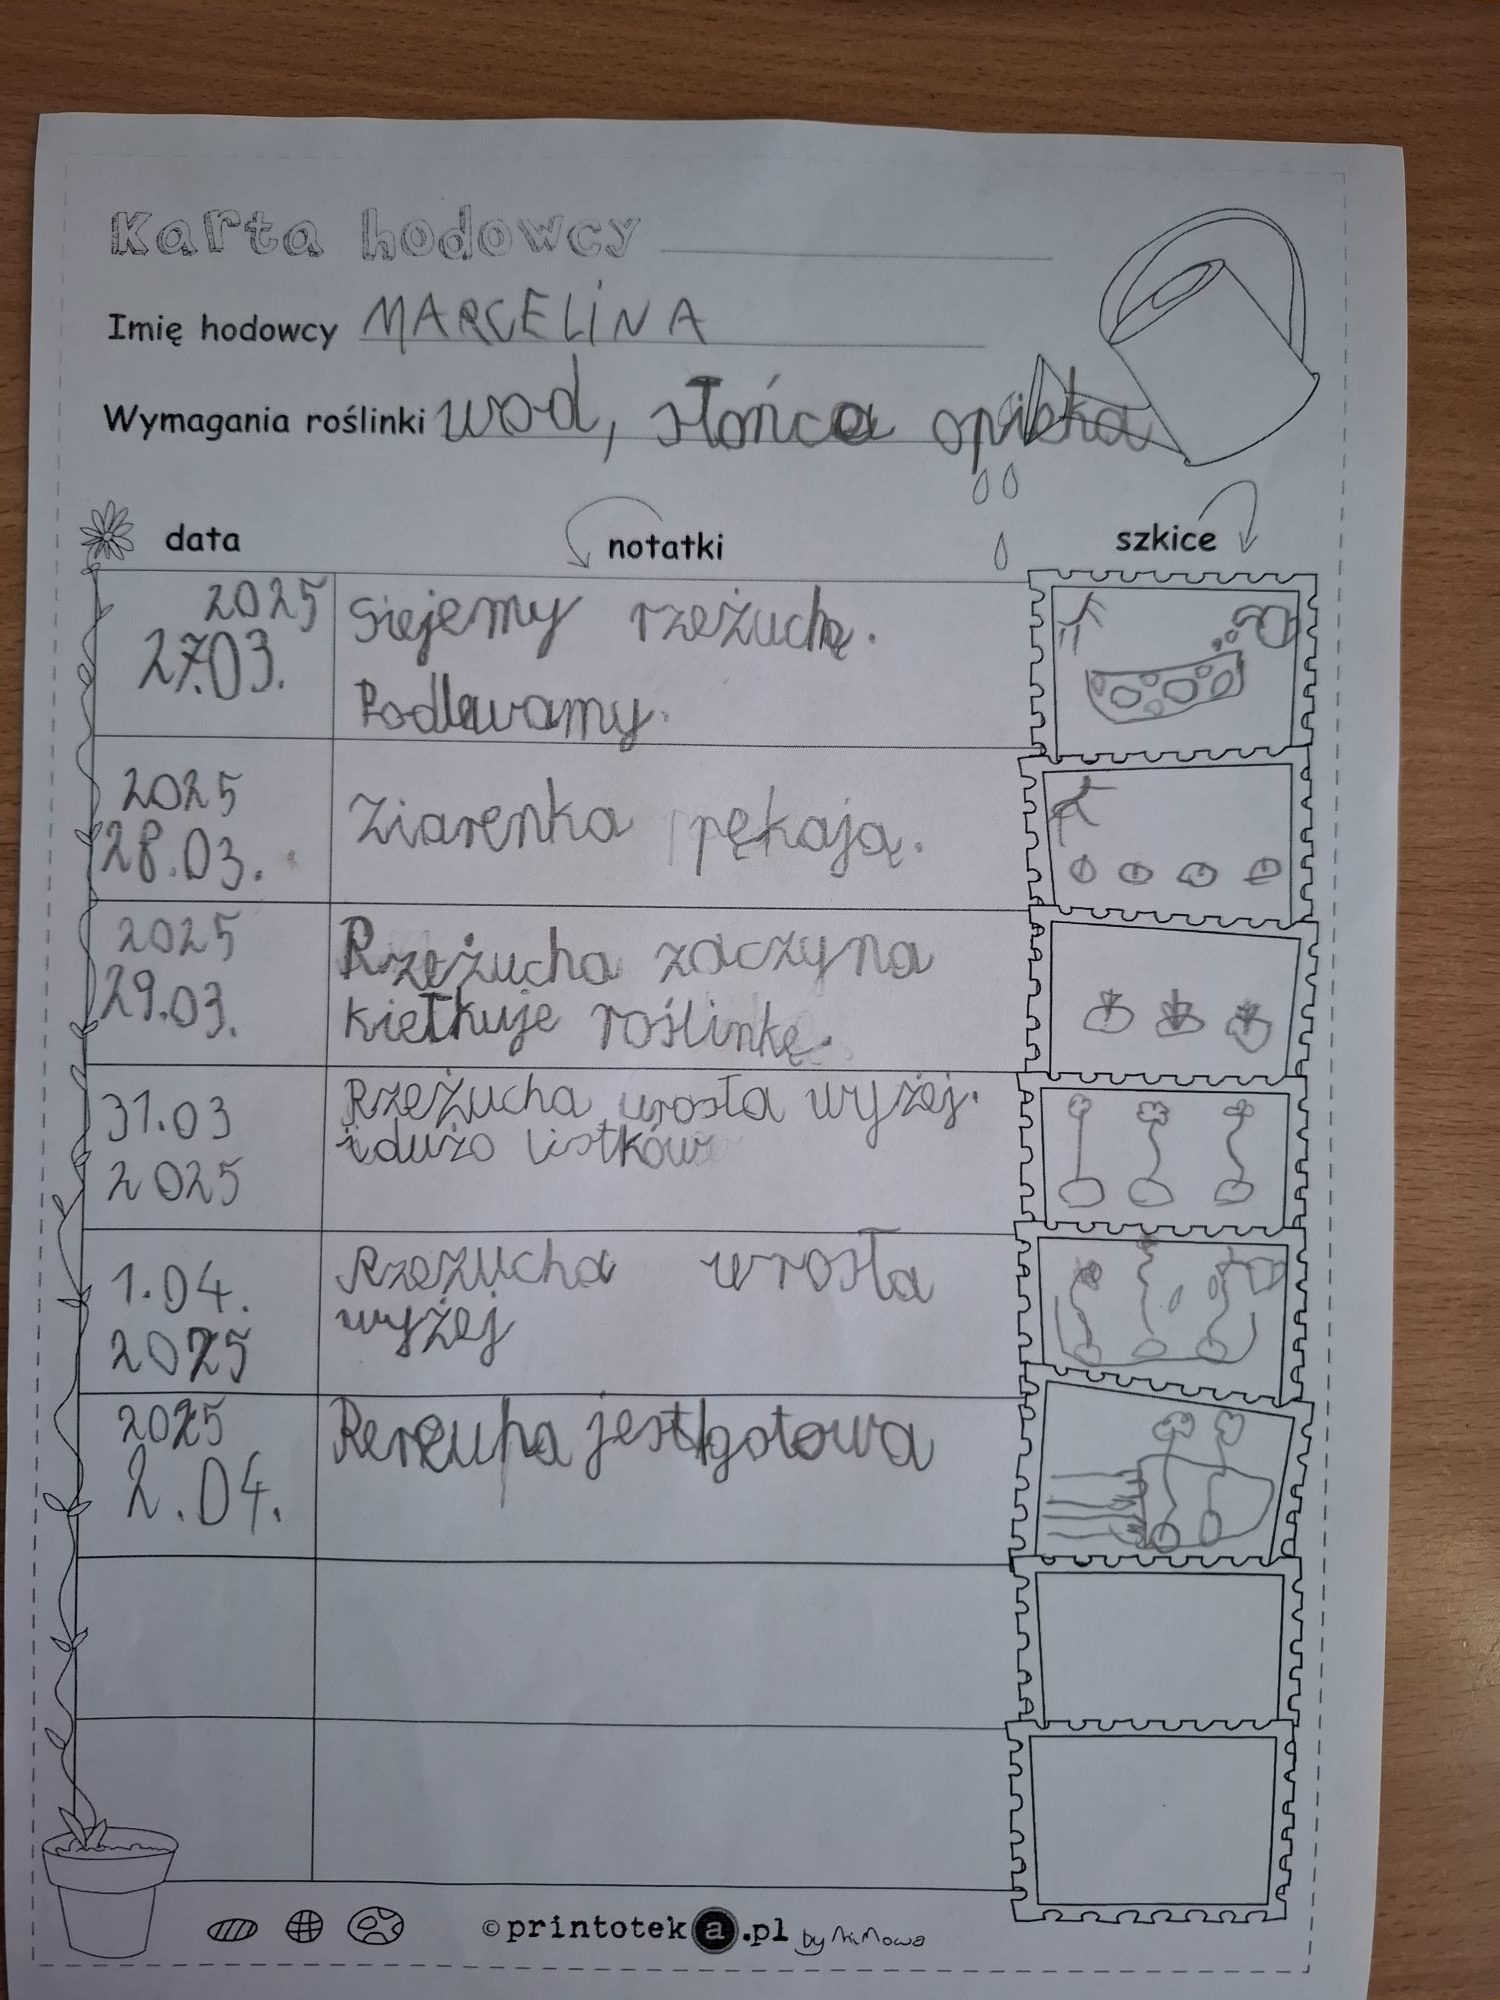 Karta hodowcy
Imię hodowcy MARCELINA
Wymagania roślinki wod, słońca opieka
data notatki szkice
2025
27.03.
Siejemy rzeżuchę.
Podlewamy.
2025
28.03.
Ziarenka pękają.
2025
29.03.
Rzeżucha zaczyna
kiełkuje roślinkę.
31.03
2025
Rzeżucha urosła wyżej.
i dużo listków
1.04.
2025
Rzeżucha wrosła
wyżej
2025
2.04.
jest gotowa
©printoteka.pl by MiMowa